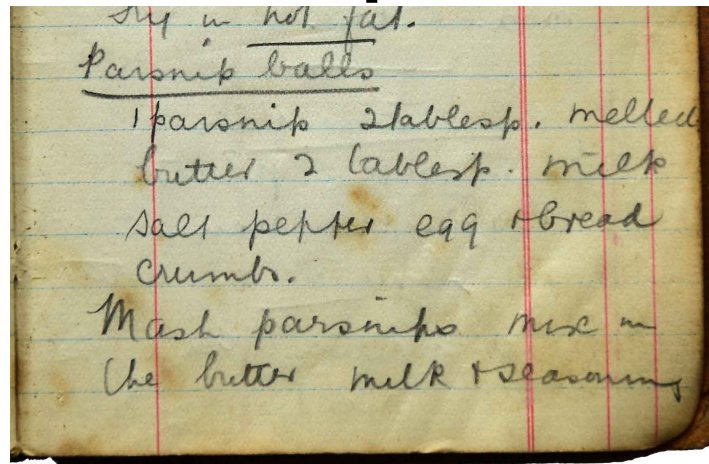 fry in hot fat.
Parsnip balls
1 parsnip 2 tablesp. melted
butter 2 tablesp. milk
salt pepper egg + bread
crumbs.
Mash parsnips mix in
the butter milk + seasoning